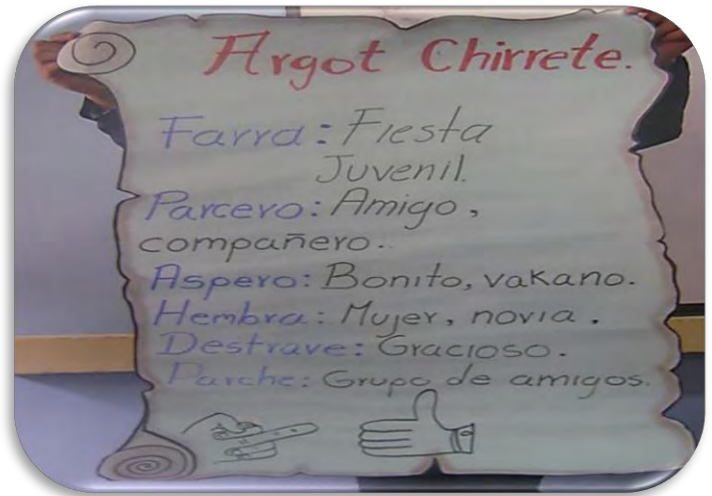 Argot Chirrete.
Farra: Fiesta
Juvenil.
Parcero: Amigo,
compañero..
Aspero: Bonito, vakano.
Hembra: Mujer, novia.
Destrave: Gracioso.
Parche: Grupo de amigos.